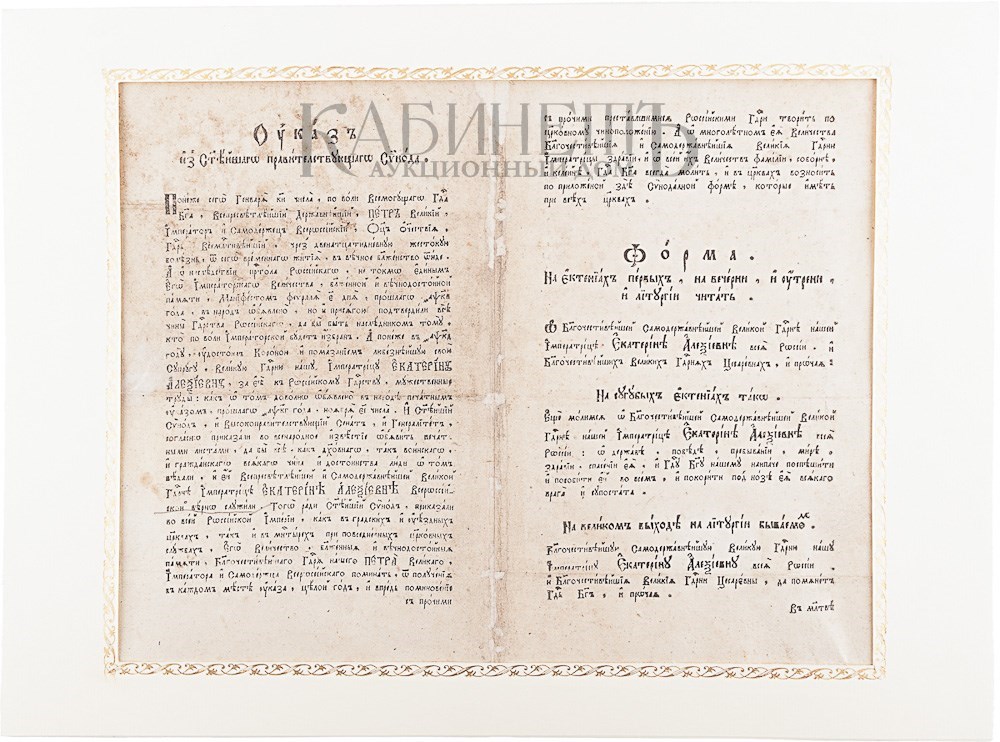 КАБИНЕТЪ
АУКЦИОННЫЙ ДОМ
Оу҆ка́зъ
и҆з̾ Ст҃ѣ́йшагѡ прави́телствꙋющагѡ Сѷно́да .
Поне́же сегѡ̀ Генварѧ̀ к҃и числа̀ , по во́ли Всемогꙋ́щагѡ Гдⷭ҇а
Бг҃а , Всепресвѣтлѣ́йшїй Держа́внѣйшїй , ПЕТРЪ Вели́кїй ,
І҆мпера́торъ и҆ Самоде́ржецъ Всерѡссі́йскїй . Ѻ҆ц҃ъ ѻ҆те́чествїѧ ,
Гдⷭ҇рь Всемⷧ҇тивѣ́йшїй , чрез̾ двена́тцатидне́внꙋю жесто́кꙋю
болѣ́знь , ѿ сегѡ̀ вре́меннагѡ житїѧ̀ , въ вѣ́чное блаже́нство ѿи́де .
А҆ ѡ҆ наслѣ́дствїи прⷭ҇то́ла Рѡссі́йскагѡ , не то́кмѡ є҆ди́нымъ
Е҆гѡ̀ І҆мпера́торскагѡ Вели́чества , блаже́нной и҆ вѣчнодосто́йной
па́мѧти , Манїфе́стомъ февралѧ̀ є҃ днѧ̀ , про́шлагѡ ҂аѱк҃в
го́да , въ наро́дъ ѡ҆б̾ѧ́влено , но и҆ прися́гою подтверди́ли всѣ̀
чины̀ Гдⷭ҇рства Рѡссі́йскагѡ , да бы̀ бы́ть наслѣ́дникомъ томꙋ̀ ,
кто̀ по во́ли І҆мпера́торской бꙋ́детъ и҆збра́нъ . А҆ поне́же въ ҂аѱк҃д
годꙋ̀ , ᲂу҆досто́илъ Коро́ною и҆ пома́занїемъ любе́знѣйшꙋю свою̀
Сꙋпрꙋ́гꙋ , Вели́кꙋю Гдⷭ҇рню на́шꙋ , І҆мператри́цꙋ ЕКАТЕРИНꙊ
АЛЕѮІЕВНꙊ , за є҆ѧ̀ къ Рѡссі́йскомꙋ Гдⷭ҇рствꙋ , мꙋ́жественные
трꙋды̀ : ка́къ ѡ҆ то́мъ дово́лно ѡ҆б̾ѧ́влено въ наро́дѣ печа́тнымъ
ᲂу҆ка́зомъ , про́шлагѡ ҂аѱк҃г го́да , ноѧ́брѧ є҃і числа̀ . И҆ Ст҃ѣ́йшїй
Сѷно́дъ , и҆ Высокоправи́телствꙋющїй Сена́тъ , и҆ Генералите́тъ ,
согла́снѡ приказа́ли во всенаро́дное и҆звѣ́стїе ѡ҆б̾ѧви́ть печа́т-
ными листа́ми , да бы̀ всѣ̀ , ка́къ дꙋхо́внагѡ , та́къ во́инскагѡ ,
и҆ гражда́нскагѡ всѧ́кагѡ чи́на и҆ досто́инства лю́ди ѡ҆ то́мъ
вѣ́дали , и҆ є҆́й Всепресвѣтлѣ́йшей Самодержа́внѣйшей Вели́кой
Гдⷭ҇рнѣ І҆мператри́цѣ ЕКАТЕРИНѢ АЛЕѮІЕВНѢ Всерѡссі́й-
ской вѣ́рнѡ слꙋжи́ли . Тогѡ̀ ра́ди Ст҃ѣ́йшїй Сѷно́дъ , приказа́ли
во все́й Рѡссі́йской І҆мпе́рїи , ка́къ въ гра́дскихъ и҆ ᲂу҆ѣ́здныхъ
цр҃квахъ , та́къ и҆ въ мн҃тырѣ́хъ при повседне́вныхъ цр҃ко́вныхъ
слꙋ́жбахъ , Е҆гѡ̀ Вели́чество , блаже́нныѧ и҆ вѣчнодосто́йныѧ
па́мѧти , Благочести́вѣйшаго Гдⷭ҇рѧ на́шего ПЕТРА Вели́каго ,
І҆мпера́тора и҆ Самоде́ржца Всерѡссі́йскаго помина́ть , ѿ полꙋче́нїѧ
въ ка́ждомъ мѣ́стѣ ᲂу҆ка́за , цѣ́лой го́дъ , и҆ впре́дь поминове́нїе
съ про́чими
съ про́чими преста́вльшимисѧ Рѡссі́йскими Гдⷭ҇ри твори́ть по
цр҃ко́вномꙋ чиноположе́нїю . А҆ ѡ҆ многолѣ́тномъ є҆ѧ̀ Вели́чества
Благочести́вѣйшїѧ и҆ Самодержа́внѣйшїѧ Вели́кїѧ Гдⷭ҇рни
І҆мператри́цы здра́вїи , и҆ ѡ҆ все́й и҆́хъ Вели́чествъ фамі́лїи , собо́рнѣ ,
и҆ келе́йнѣ Гдⷭ҇а Бг҃а всегда̀ моли́ть , и҆ въ цр҃квахъ возноси́ть
по прило́женной здѣ̀ Сѷнода́лной фо́рмѣ , кото́рые и҆мѣ́ть
при всѣ́хъ цр҃квахъ .
Фо́рма .
На є҆ктенїа́хъ пе́рвыхъ , на вече́рни , и҆ ᲂу҆́трени ,
и҆ лїтꙋргі́и чита́ть .
Ѡ҆ Благочести́вѣйшей Самодержа́внѣйшей Вели́кой Гдⷭ҇рнѣ на́шей
І҆мператри́цѣ Е҆катери́нѣ А҆леѯі́евнѣ всеѧ̀ Рѡссі́и . и҆
Благочести́вѣйшихъ Вели́кихъ Гдⷭ҇рнѧхъ Цесаре́внахъ , и҆ про́чаѧ :
На сꙋгꙋ́быхъ є҆ктенїа́хъ та́кѡ .
Е҆щѐ мо́лимсѧ ѡ҆ Благочести́вѣйшей Самодержа́внѣйшей Вели́кой
Гдⷭ҇рнѣ , на́шей І҆мператри́цѣ Е҆катери́нѣ А҆леѯі́евнѣ всеѧ̀
Рѡссі́и : ѡ҆ держа́вѣ , побѣ́дѣ , пребыва́нїи , ми́рѣ ,
здра́вїи , спасе́нїи є҆ѧ̀ , и҆ Гдⷭ҇ꙋ Бг҃ꙋ на́шемꙋ наипа́че поспѣши́ти
и҆ пособи́ти є҆́й во все́мъ , и҆ покори́ти под̾ но́зѣ є҆ѧ̀ всѧ́каго
врага̀ и҆ сꙋпоста́та .
На вели́комъ вы́ходѣ на лїтꙋргі́и быва́емоⷨ .
Благочести́вѣйшꙋю Самодержа́внѣйшꙋю Вели́кꙋю Гдⷭ҇рню на́шꙋ
І҆мператри́цꙋ Е҆катери́нꙋ А҆леѯі́евнꙋ всеѧ̀ Рѡссі́и .
и҆ Благочести́вѣйшїѧ Вели́кїѧ Гдⷭ҇рни Цесаре́вны , да помѧне́тъ
Гдⷭ҇ь Бг҃ъ , и҆ про́чаѧ .
Въ мл҃твѣ